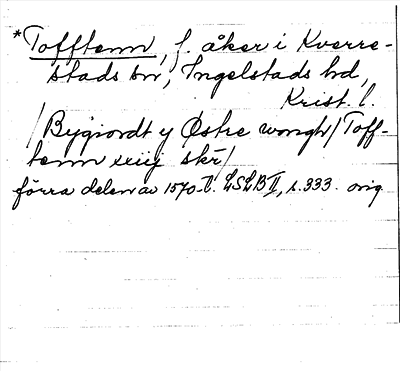 *Tofftenn, f. åker i Kverre-
stads sn, Ingelstads hd,
Krist. l.
/Bygiordt y Østre wongh/Toff-
tenn xxiij skr/
förra delen av 1570-t. LSLB II, s.333. orig